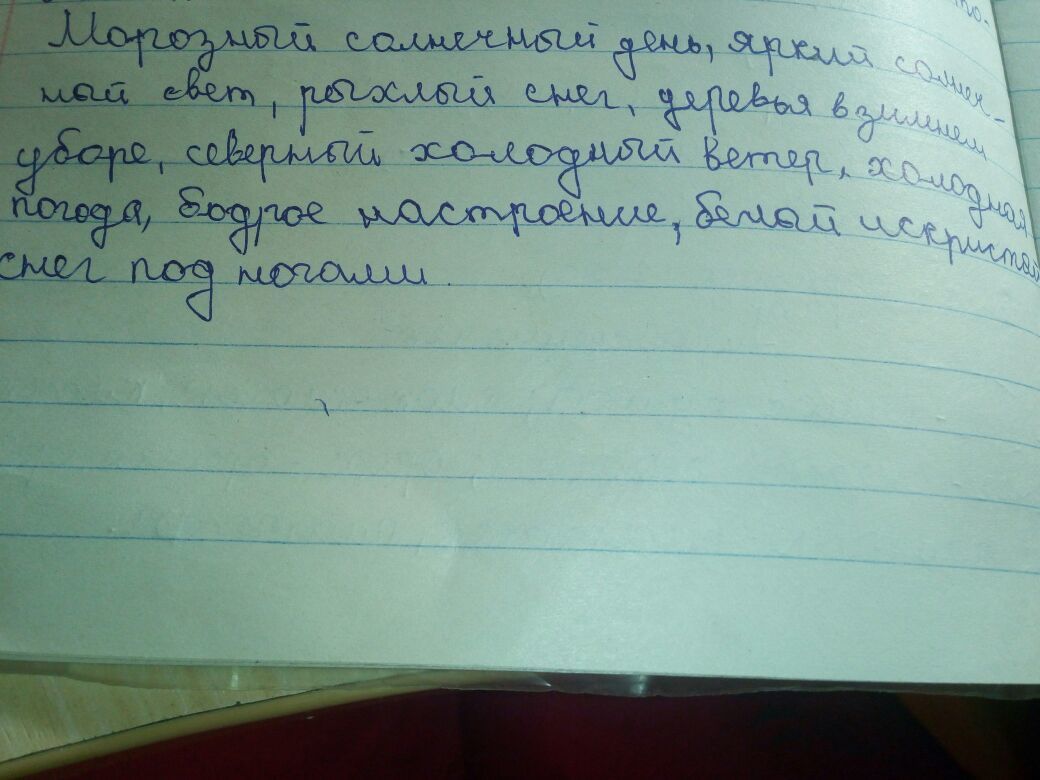 Морозный солнечный день, яркий солнеч-
ный свет, рыхлый снег, деревья в зимнем
уборе, северный холодный ветер, холодная
погода, бодрое настроение, белый искристый
снег под ногами.